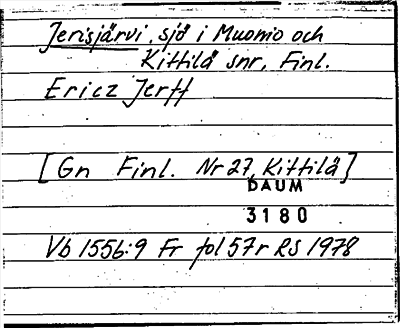 Jerisjärvi, sjö i Muonio och
Kittilä snr, Finl.
Ericz Jerff
[Gn Finl. Nr 27, Kittilä]
DAUM
3180
Vb 155b:9 Fr fol 57r RS 1978